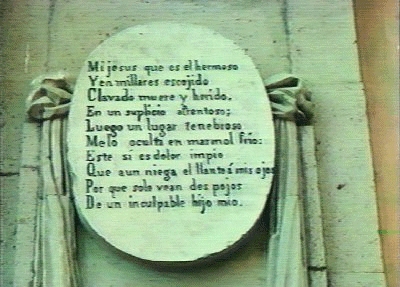 Mi jesus que es el hermoso
Y en millares escojido
Clavado muere y herido.
En un suplicio afrentoso;
Luego un lugar tenebroso
Melo oculta en marmol frio:
Este si es dolor impio
Que aun niega el llanto á mis ojos
Por que solo vean despojos
De un inculpable hijo mio.